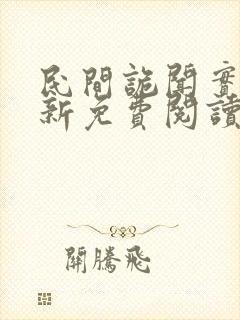 民間詭聞實
新免費閱讀
關騰飛